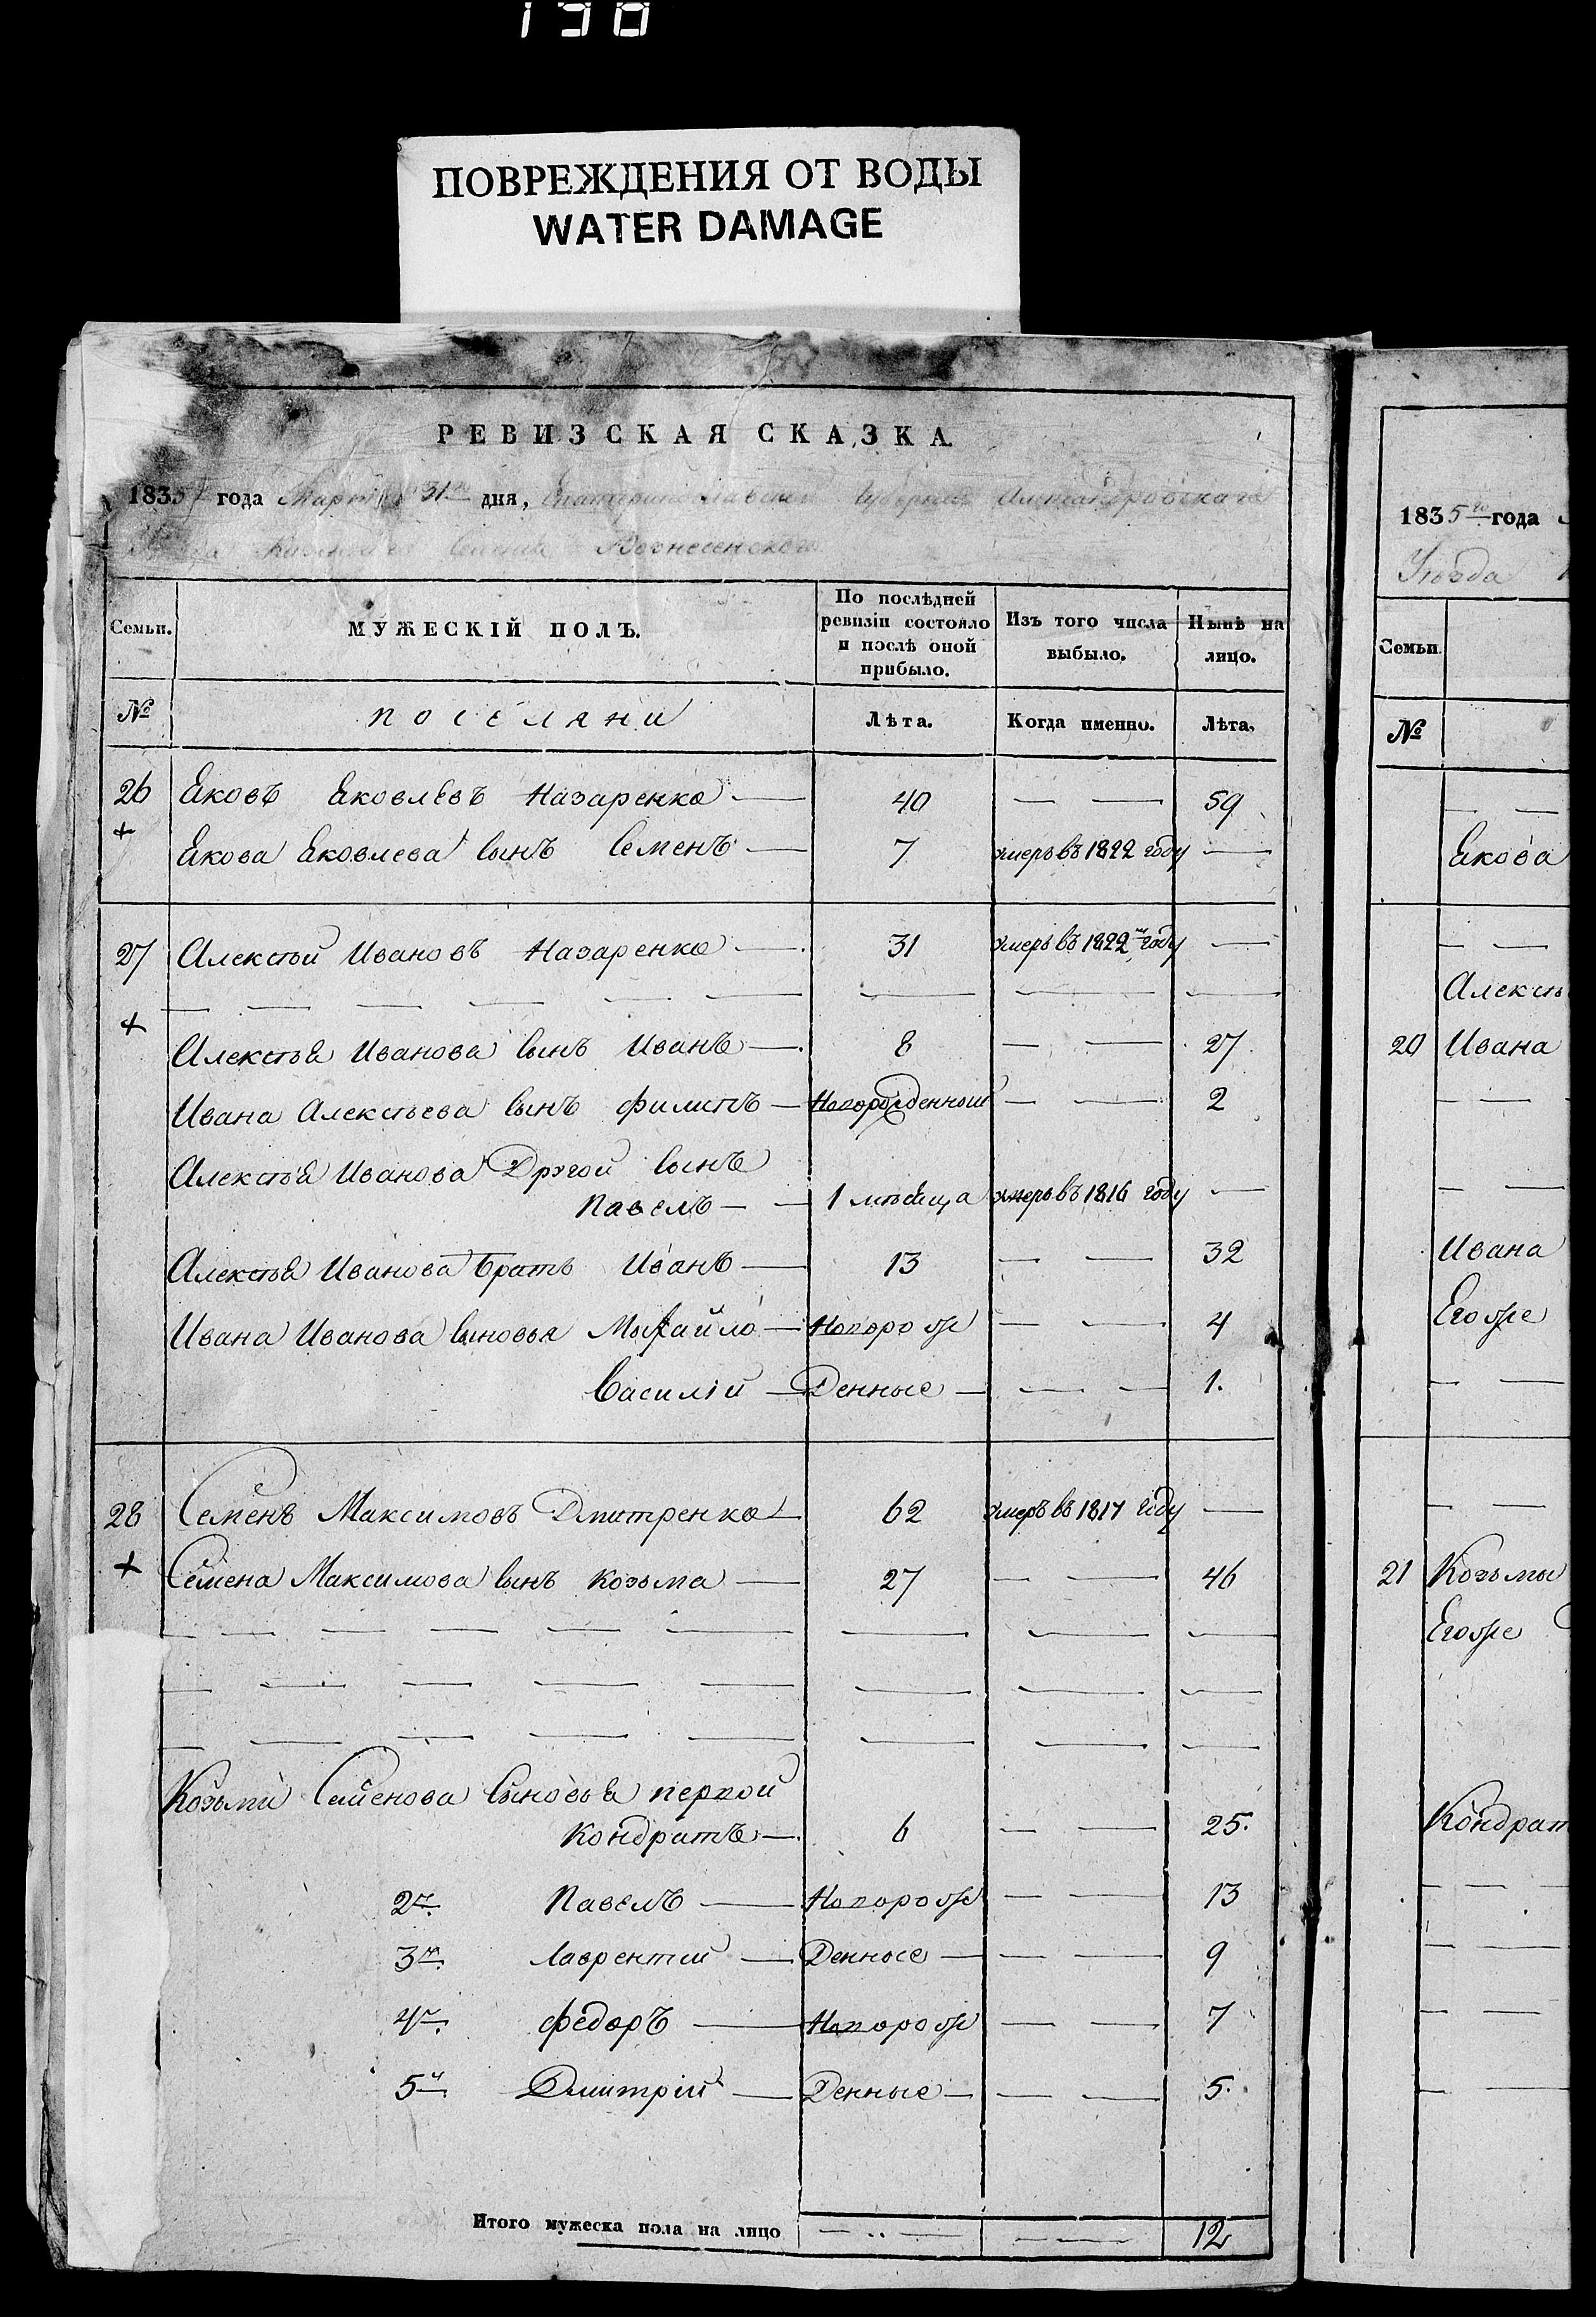 130
ПОВРЕЖДЕНИЯ ОТ ВОДЫ
WATER DAMAGE
РЕВИЗСКАЯ СКАЗКА.
1835 года Марта 31го дня, Екатеринославской Губернии Александровскаго
Казеннаго Селения Вознесенскаго
Семьи. МУЖЕСКІЙ ПОЛЪ. По послѣдней ревизіи состояло и послѣ оной прибыло. Изъ того числа выбыло. Нынѣ на лицо.
№ поселяни Лѣта. Когда именно. Лѣта.
26 Яковъ Яковлевъ Назаренко — 40 — — 59
+ Якова Яковлева Сынъ Семенъ — 7 умеръ въ 1822 году —
27 Алексѣй Ивановъ Назаренко — 31 умеръ въ 1822м году —
+
Алексѣя Иванова Сынъ Иванъ — 8 — — 27
Ивана Алексѣева Сынъ Филипъ — Новорожденный — — 2
Алексѣя Иванова Другой Сынъ
Павелъ — — 1 мѣсяца умеръ въ 1816 году —
Алексѣя Иванова Братъ Иванъ — 13 — — 32
Ивана Иванова Сыновья Михайло — Новорож — — 4
Василій — Денные — — — 1.
28 Семенъ Максимовъ Дмитренко — 62 умеръ въ 1817 году —
+ Семена Максимова Сынъ Козьма — 27 — — 46
Козьми Семенова Сыновья первой
Кондратъ — 6 — — 25.
2й Павелъ — Новорож — — 13
3й Лаврентий — Денные — — — 9
4й Федоръ — Новорож — — 7
5й Дмитрій — Денные — — — 5.
Итого мужеска пола на лицо — .. — — 12
1835го года
Уѣзда
Семьи.
№
Якова
Алексѣ
20 Ивана
Ивана
Егоже
21 Козьмы
Егоже
Кондрат